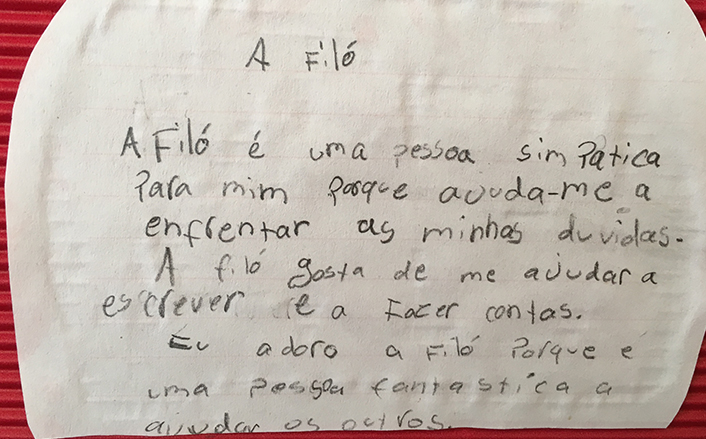 A Filó
A Filó é uma pessoa simpática
Para mim Porque aduda-me a
enfrentar as minhas duvidas.
A filó gosta de me aiudar a
escrever e a Fazer contas.
Eu adoro a Filó Porque e
uma Pessoa fantastica a
aiuudar os outros.